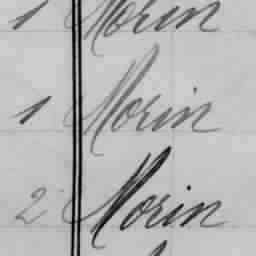 1 Morin
1 Morin
2 Morin